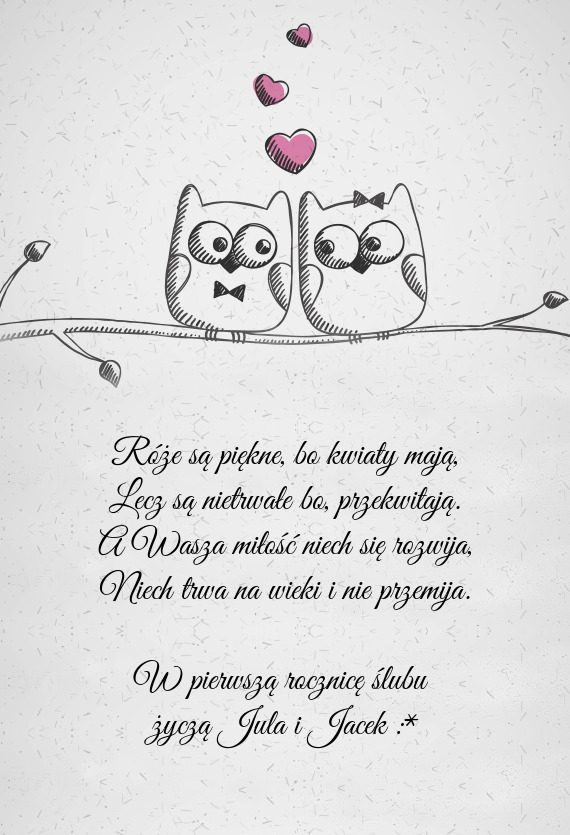 Róże są piękne, bo kwiaty mają,
Lecz są nietrwałe bo, przekwitają.
A Wasza miłość niech się rozwija,
Niech trwa na wieki i nie przemija.
W pierwszą rocznicę ślubu
życzą Jula i Jacek :*